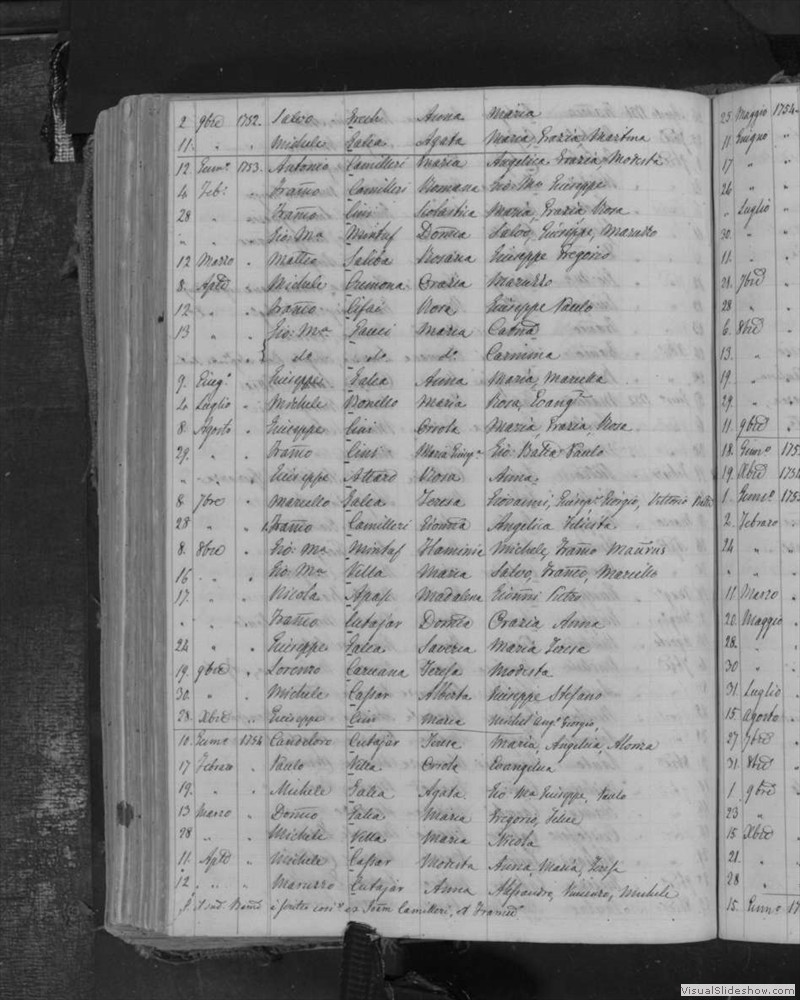 2 9bre 1752. Salvo Anna Maria
11. " " Michele Galea Agata Maria, Grazia, Martina
12. Genn.o 1753. Antonio Camilleri Maria Angelica Grazia Modesta
4 Feb. " Franco Camilleri Romana Gio: Ma. Giuseppe
28 " " Franco Cini Scolastica Maria, Grazia, Rosa
" " " Gio: Ma. Mintuf Donica Salvo, Giuseppe, Maruzzo
12 Marzo " Matteo Saliba Rosaria Giuseppe Gregorio
8. Aple " Michele Cremona Grazia Maruzzo
12 " " Franco Rosa Giuseppe Paulo
13 " " Gio: Ma. Gauci Maria Catna
" " " do do do Carmina
9. Giug.o " Giuseppe Galea Anna Maria, Marietta
2. Luglio " Michele Bonello Maria Rosa, Evang.a
8. Agosto " Giuseppe Cini Orsola Maria Grazia Rosa
29. " " Franco Cini Maria Gio: Batta Paulo
" " " Giuseppe Attard Rosa Anna
8 7bre " Marcello Galea Teresa Giovanni, Giorgio, Vittorio
28 " " Franco Camilleri Gionna Angelica
8. 8bre " Gio: Ma. Mintuf Flaminia Michele, Franco Maurus
16 " " Gio: Ma. Vella Maria Salvo, Franco, Marcello
17. " " Nicola Apap Madalena Gionni Pietro
" " " Franco Cutajar Grazia Anna
24 " " Giuseppe Galea Saveria Maria Teresa
19. 9bre " Lorenzo Caruana Teresa Modesta
30. " " Michele Caspar Alberta Giuseppe Stefano
28. Xbre " Giuseppe Cini Maria Michel Ang.o Giorgio,
10. Genn.o 1754 Candeloro Cutajar Teresa Maria, Angelica, Alonza
17 Febraro " Paulo Vella Orsola Evangelica
19. " " Michele Galea Agata Gio Ma Giuseppe, Paulo
13 Marzo " Galea Maria Gregorio, Felice
28 " " Michele Vella Maria Nicola
11. Aple " Michele Caspar Modesta Anna Maria, Teresa
12. " " Maruzzo Cutajar Anna Alessandro, Vincenzo, Michele
Camilleri, et
25. Maggio 1754.
11. Giugno "
17 "
26 "
" Luglio "
30. "
11. "
21. 7bre
28 "
6. 8bre
13. "
19. "
29. "
11. 9bre
18. Genn.o 175
19. Xbre 175
1. Genn.o 175
2. Febraro "
24 "
" "
11. Marzo "
20. Maggio
28. "
30 "
31. Luglio
15. Agosto
27 7bre
31. 8bre
1. 9bre
23 "
15 Xbre
21. "
28 "
15. Genn.o 17
VisualSlideshow.com